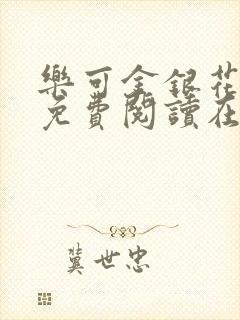 樂可金銀花
免費閱讀在
冀世忠